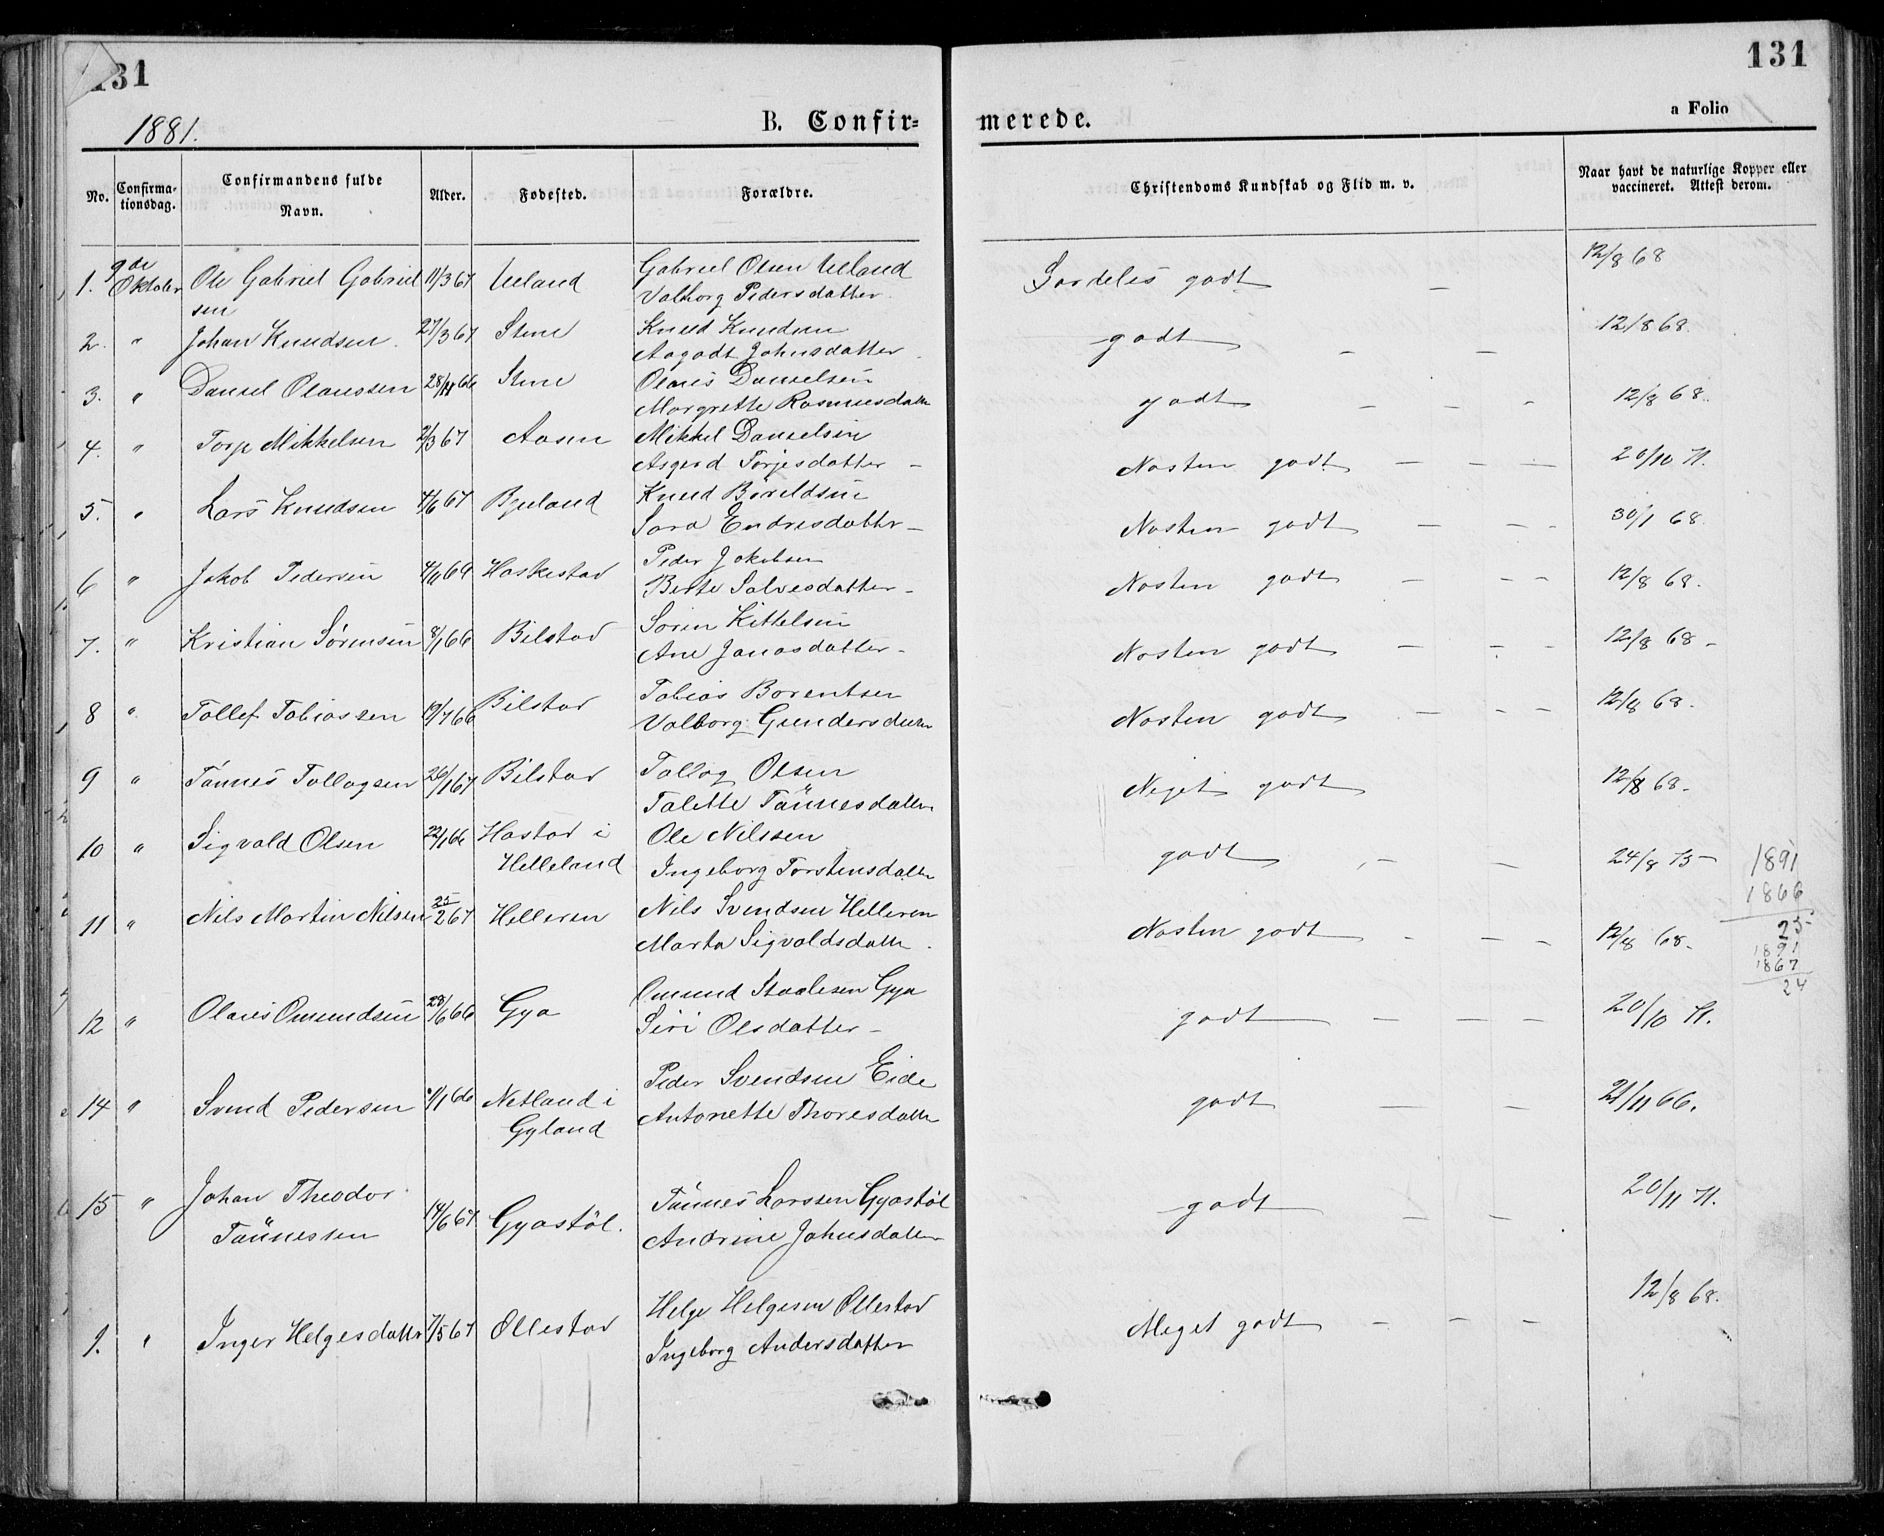 131
131
1881.
B. Confir=
merede.
a Folio
No.
Confirma-
tionsdag.
Confirmandens fulde
Navn.
Alder.
Fødested.
Forældre.
Christendoms Kundskab og Flid m. v.
Naar havt de naturlige Kopper eller
vaccineret. Attest derom.
1. 9de Oktober Ole Gabriel Gabriel 11/3 67 Ueland Gabriel Olsen Ueland godt 12/8 68
sen Valborg Pedersdatter.
2. " Johan Knudsen. 27/3 67 Stene Knud Knudsen godt 12/8 68.
Aagodt Johnsdatter.
3. " Daniel Olaussen 28/11 66 Stene Olaus Danielsen godt 12/8 68.
Margrethe Rasmusdatter
4. " Torje Mikkelsen 2/3 67 Aasen Mikkel Danielsen Næsten godt 20/10 71.
Asgerd Torjesdatter
5. " Lars Knudsen 4/6 67 Bjuland Knud Boreldsen Næsten godt 30/1 68.
Sara Endresdatter
6 " Jakob Pedersen Haskestad Peder Jakobsen Næsten godt 12/8 68.
Berte Salvesdatter
7. " Kristian Sørensen 8/1 66 Bilstad Sørin Kittelsen Næsten godt 12/8 68
Ane Janasdatter
8 " Tollef Tobiassen 19/7 66 Bilstad Tobias Borentsen Næsten godt 12/8 68.
Valborg Gundersdatter
9 " Tönnes Tollagsen 26/1 67 Bilstad Tollag Olsen Meget godt 12/8 68
Talette Tönnesdatter
10 " Sigvald Olsen 22/1 66 Hastad i Ole Nilssen godt 24/8 75
Helleland Ingeborg Torstensdatter
1891
1866
25
11 " Nils Martin Nilsen 25/2 67 Helleren Nils Svendsen Helleren Næsten godt 12/8 68
Marta Sigvaldsdatter.
1891
1867
24
12 " Olaus Omundsen 28/6 66 Gya Omund Staalesen Gya godt 20/10 71.
Siri Olsdatter
14 " Svend Pedersen 66 Netland i Peder Svendsen Eide godt 21/11 66.
Gyland Antonette Thoresdatter
15 " Johan Theodor 14/6 67 Gyastöl. Tönnes Larssen Gyastöl godt 20/11 71.
Tönnessen Andrine Johnsdatter
1. " Inger Helgesdatter 7/5 67 Ollestad Helge Helgesen Ollestad Meget godt 12/8 68.
Ingeborg Andersdatter